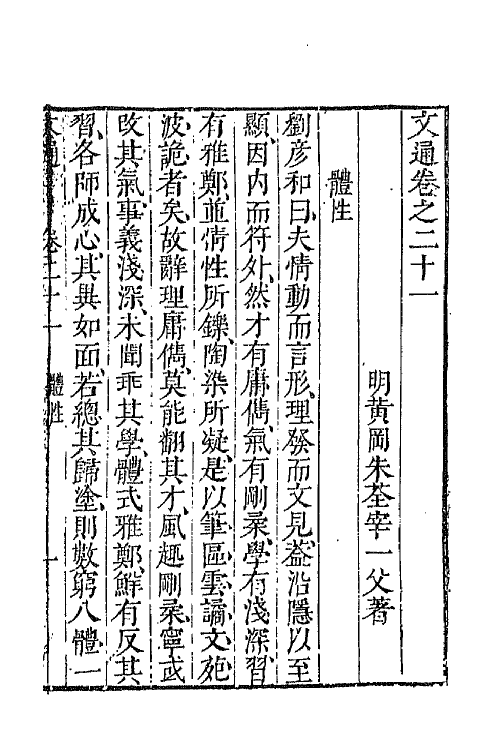 文通卷之二十一
明黃岡朱荃宰一父著
體性
劉彥和曰夫情動而言形理發而文見葢沿隱以至
顯因内而符外然才有庸儁氣有剛柔學有淺深習
有雅鄭並情性所鑠陶染所凝是以筆區雲譎文苑
波詭者矣故辭理庸儁莫能翻其才風趣剛柔寧或
改其氣事義淺深未聞乖其學體式雅鄭鮮有反其
習各師成心其異如面若總其歸塗則數窮八體一
文通 卷二十一 體性 一